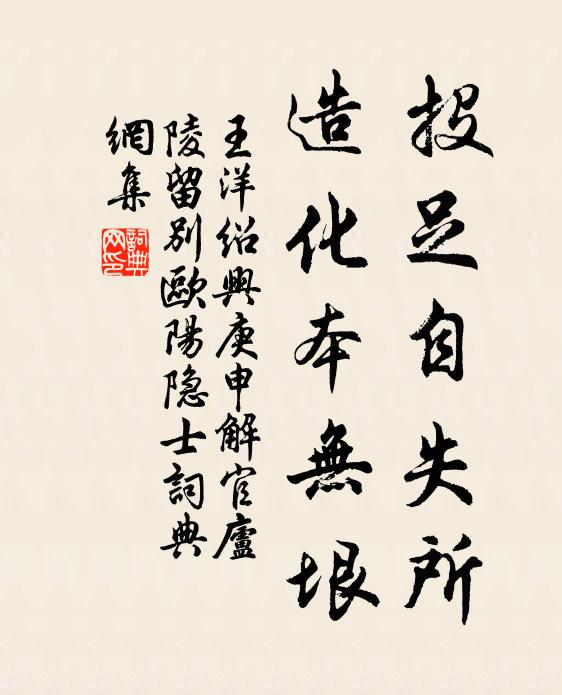 投足自失所
造化本無垠
王洋绍興庚申解官廬
陵留別歐陽隐士詞典
網集
詞典
网印